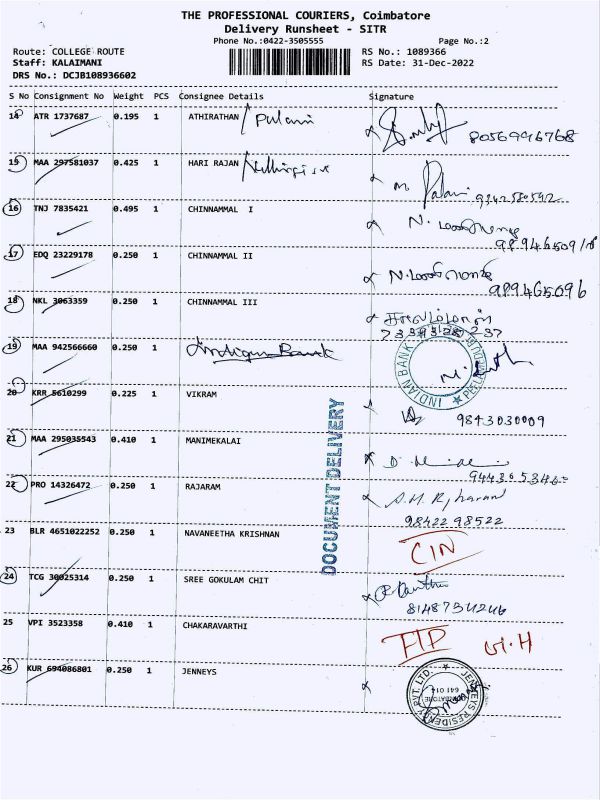 THE PROFESSIONAL COURIERS, Coimbatore
Delivery Runsheet - SITR
Phone No.:0422-3505555 Page No.:2
Route: COLLEGE ROUTE RS No.: 1089366
Staff: KALAIMANI RS Date: 31-Dec-2022
DRS No.: DCJB108936602
S No Consignment No Weight PCS Consignee Details Signature
14 ATR 1737687 0.195 1 ATHIRATHAN / Palani 80569946768
15 MAA 297581037 0.425 1 HARI RAJAN M. Palani
16 TNJ 7835421 0.495 1 CHINNAMMAL I N.
17 EDQ 23229178 0.250 1 CHINNAMMAL II N. 989465096
18 NKL 3063359 0.250 1 CHINNAMMAL III
19 MAA 942566660 0.250 1 Indian Bank INDIAN BANK
20 KRR 5610299 0.225 1 VIKRAM 9843030009
21 MAA 295035543 0.410 1 MANIMEKALAI D.
22 PRO 14326472 0.250 1 RAJARAM
98422 98522
23 BLR 4651022252 0.250 1 NAVANEETHA KRISHNAN CIN
24 TCG 30025314 0.250 1 SREE GOKULAM CHIT
8148734246
25 VPI 3523358 0.410 1 CHAKARAVARTHI
26 KUR 694086801 0.250 1 JENNEYS JENNEYS RESIDENCY PVT. LTD. 641 014
DOCUMENT DELIVERY